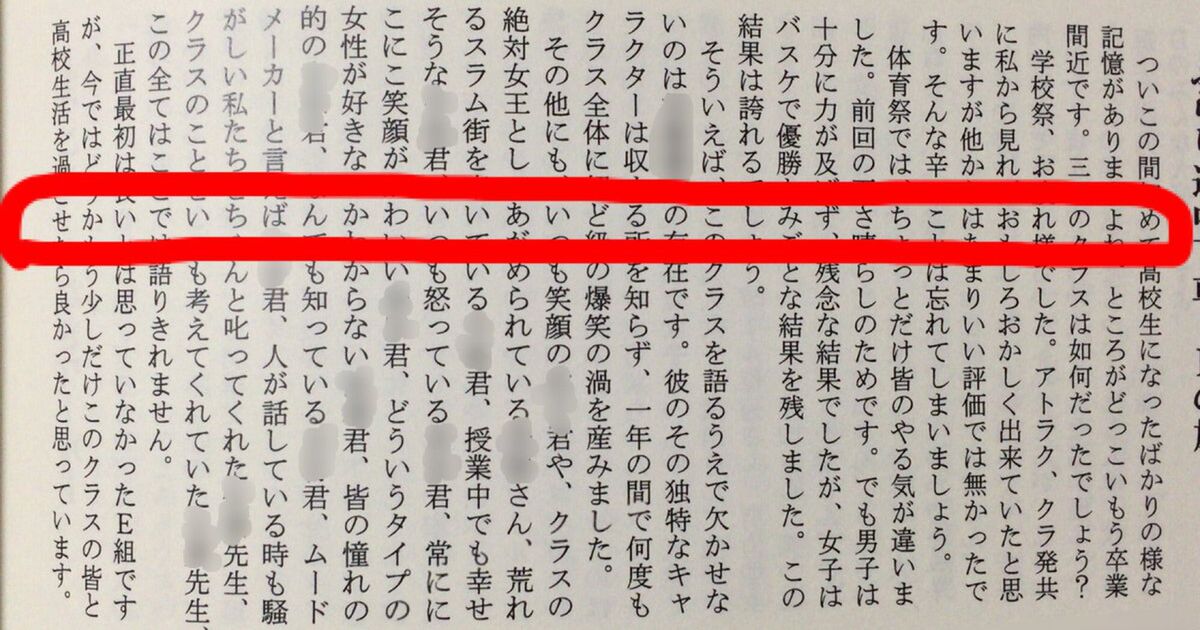 ついこの間 めて高校生になったばかりの様な
記憶がありま よね。ところがどっこいもう卒業
間近です。三 のクラスは如何だったでしょう?
学校祭、お れ様でした。アトラク、クラ発共
に私から見れ おもしろおかしく出来ていたと思
いますが他か はあまりいい評価では無かったで
す。そんな辛 ことは忘れてしまいましょう。
体育祭では、ちょっとだけ皆のやる気が違いま
した。前回の さ晴らしのためです。でも男子は
十分に力が及ばず、残念な結果でしたが、女子は
バスケで優勝 みごとな結果を残しました。この
結果は誇れるでしょう。
そういえば、このクラスを語るうえで欠かせな
いのは の存在です。彼のその独特なキャ
ラクターは収まる所を知らず、一年の間で何度も
クラス全体に ど級の爆笑の渦を産みました。
その他にも、いつも笑顔の 君や、クラスの
絶対女王とし あがめられている さん、荒れ
るスラム街を いている 君、授業中でも幸せ
そうな 君、いつも怒っている 君、常にに
こにこ笑顔が わいい 君、どういうタイプの
女性が好きな かわからない 君、皆の憧れの
的の 君、 んでも知っている 君、ムード
メーカーと言えば 君、人が話している時も騒
がしい私たち ちゃんと叱ってくれた 先生、
クラスのことをいつも考えてくれていた 先生、
この全てはここでは語りきれません。
正直最初は良いとは思っていなかったE組です
が、今ではどうかもう少しだけこのクラスの皆と
高校生活を過ごせたら良かったと思っています。